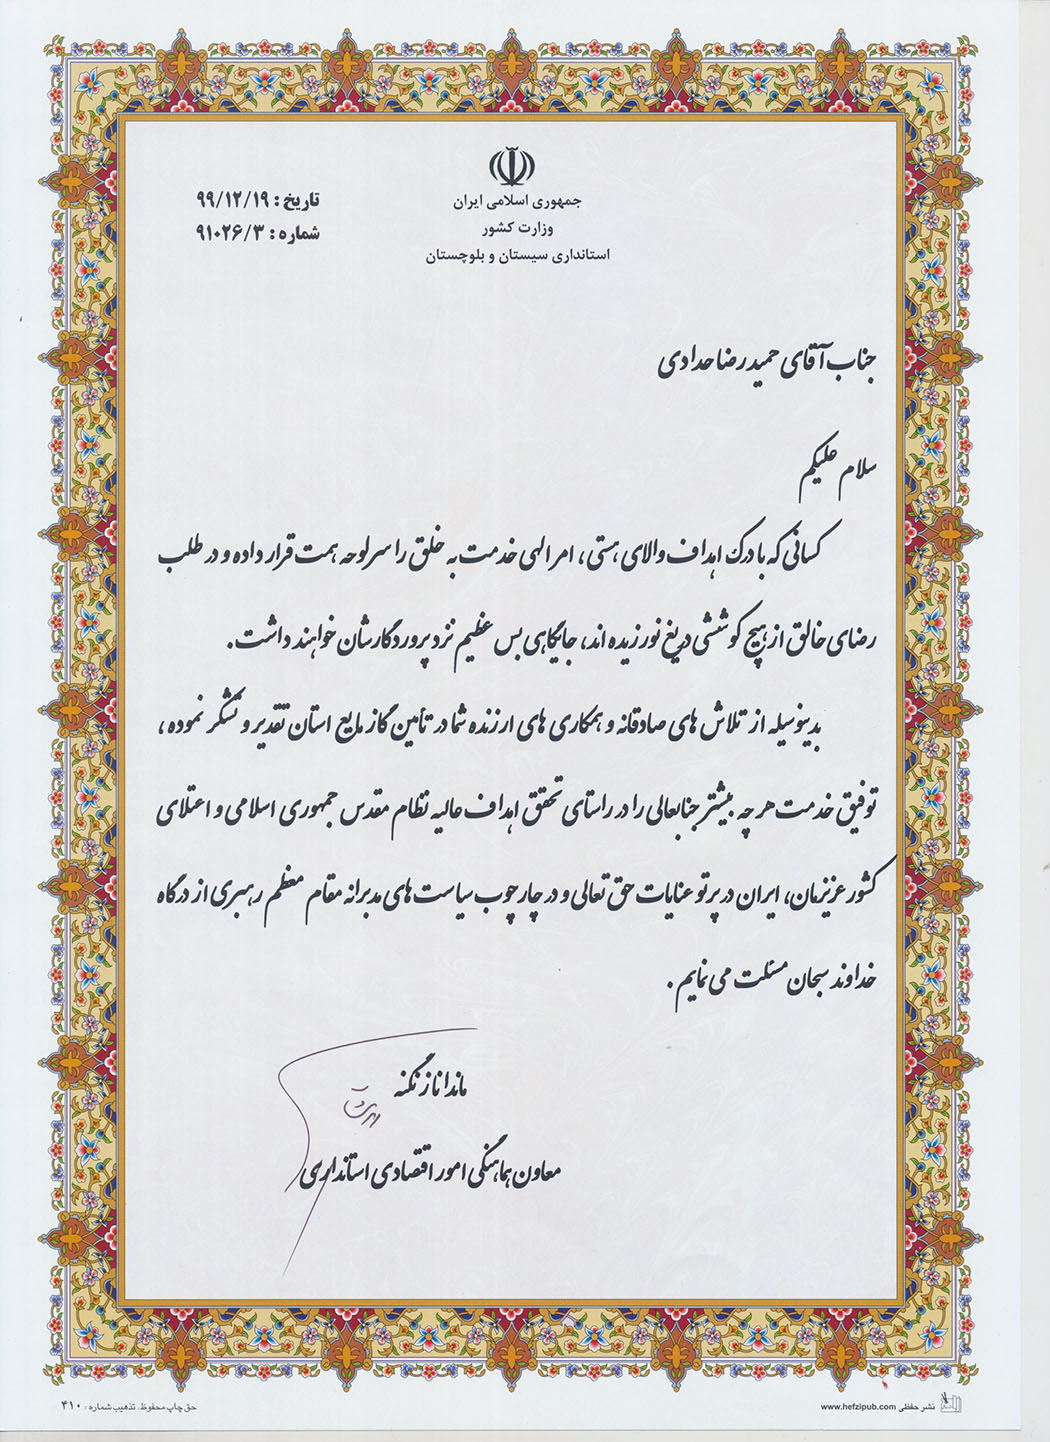 جمهوری اسلامی ایران
وزارت کشور
استانداری سیستان و بلوچستان
تاریخ : ۹۹/۱۲/۱۹
شماره : ۹۱۰۲۶/۳
جناب آقای حمید رضا حدادی
سلام علیکم
کسانی که با درک اهداف والای هستی، امر الهی خدمت به خلق را سرلوحه همت قرار داده و در طلب
رضای خالق از هیچ کوششی دریغ نورزیده اند، جایگاهی بس عظیم نزد پروردگارشان خواهند داشت.
بدینوسیله از تلاش های صادقانه و همکاری های ارزنده شما در تأمین گاز مایع استان تقدیر و تشکر نموده،
توفیق خدمت هر چه بیشتر جنابعالی را در راستای تحقق اهداف عالیه نظام مقدس جمهوری اسلامی و اعتلای
کشور عزیزمان، ایران در پرتو عنایات حق تعالی و در چارچوب سیاست های مدبرانه مقام معظم رهبری از درگاه
خداوند سبحان مسئلت می نمایم.
ماندانا زنگنه
معاون هماهنگی امور اقتصادی استانداری
حق چاپ محفوظ. تذهیب شماره : ۴۱۰
نشر حفظی www.hefzipub.com